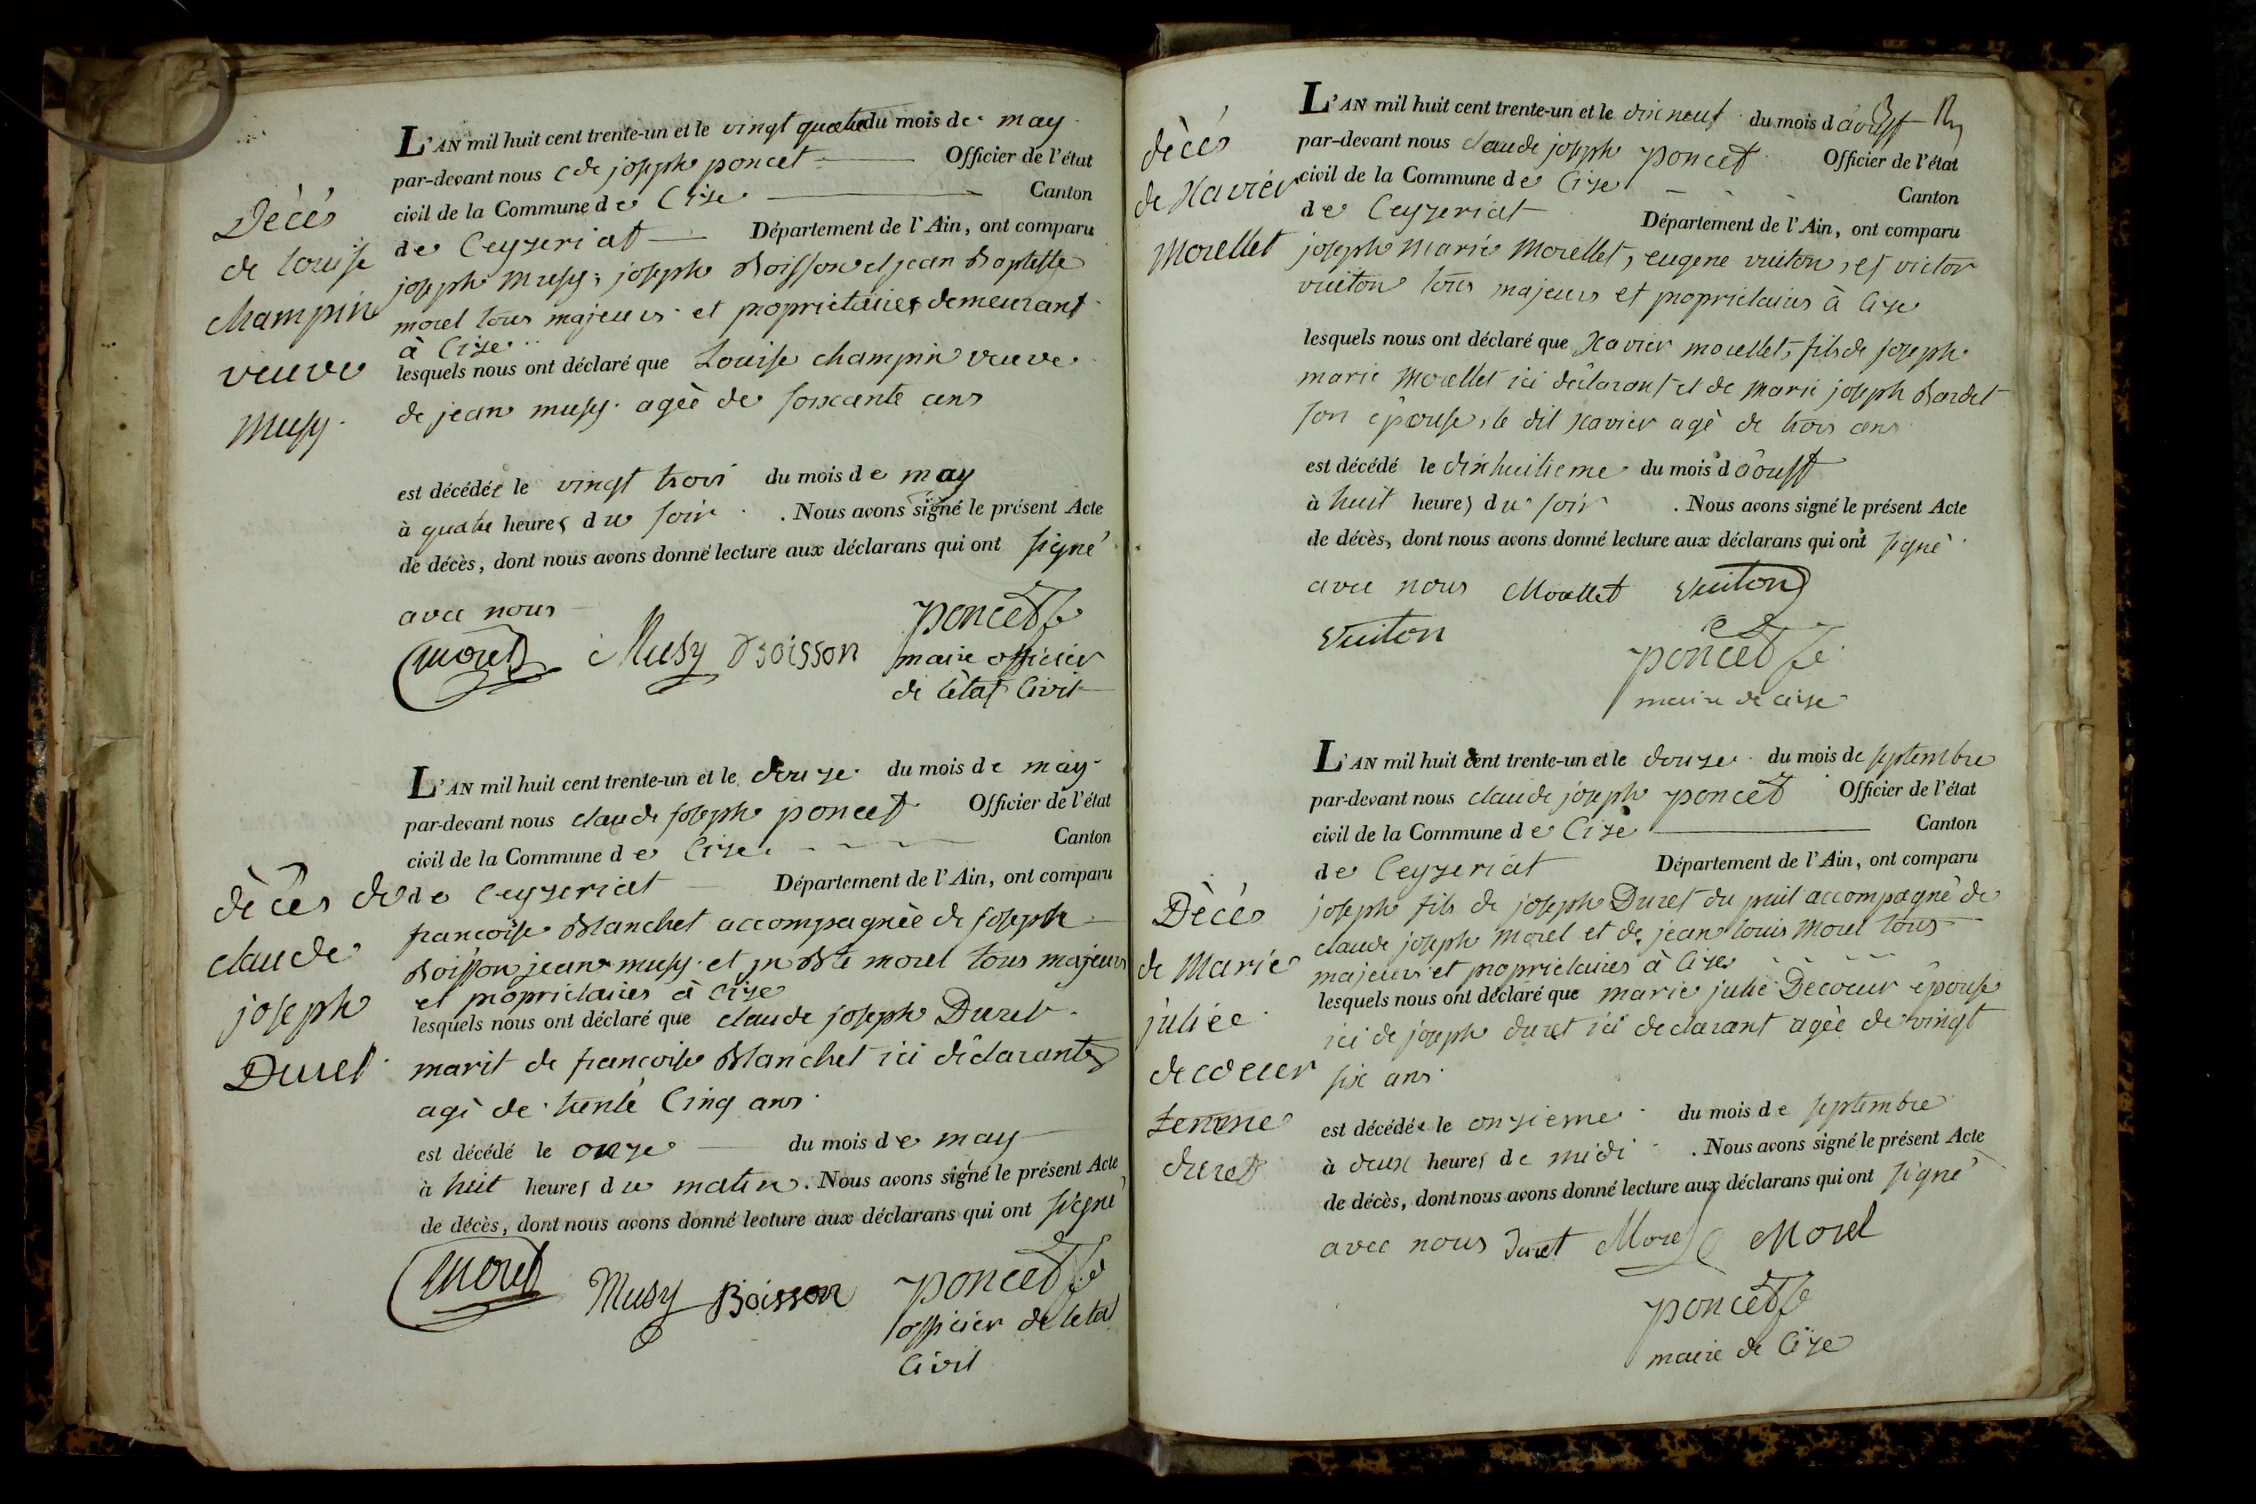 Dècès
de louise
champin
veuve
musy.
L'AN mil huit cent trente-un et le vingt quatre du mois de may
par-devant nous cde joseph poncet Officier de l'état
civil de la Commune de Cize Canton
de Ceyzeriat Département de l'Ain, ont comparu
joseph musy, joseph Boisson et jean Baptiste
morel tous majeurs et proprietaires demeurant
à Cize
lesquels nous ont déclaré que Louise champin veuve
de jean musy agèè de soixante ans
est décédée le vingt trois du mois de may
à quatre heures du soir . Nous avons signé le présent Acte
de décès, dont nous avons donné lecture aux déclarans qui ont signé
avec nous
morel Musy Boisson poncet
maire officier
de l'ètat Civil
dècès de
claude
joseph
Duret
L'AN mil huit cent trente-un et le douze du mois de may
par-devant nous claude joseph poncet Officier de l'état
civil de la Commune de Cize Canton
de Ceyzeriat Département de l'Ain, ont comparu
francoise Blanchet accompagnèe de joseph
Boisson jean musy et jn Bte morel tous majeurs
et proprietaires à Cize
lesquels nous ont déclaré que claude joseph Duret
marit de francoise Blanchet ici dèclarante
agè de trente Cinq ans
est décédé le onze du mois de may
à huit heures du matin . Nous avons signé le présent Acte
de décès, dont nous avons donné lecture aux déclarans qui ont signé
morel Musy Boisson poncet
officier de letat
Civil
dècès
de Xavier
Morellet
L'AN mil huit cent trente-un et le dixneuf du mois d'aoust
par-devant nous claude joseph poncet Officier de l'état
civil de la Commune de Cize Canton
de Ceyzeriat Département de l'Ain, ont comparu
joseph marie Morellet, eugene vuiton, et victor
vuiton tous majeurs et proprietaires à Cize
lesquels nous ont déclaré que Xavier morellet, fils de joseph
marie Morellet ici dèclarant et de marie joseph Bardet
son èpouse, le dit xavier agè de trois ans
est décédé le dixhuitieme du mois d'aoust
à huit heures du soir . Nous avons signé le présent Acte
de décès, dont nous avons donné lecture aux déclarans qui ont signè
avec nous Morellet Vuiton
Vuiton poncet
maire de cize
Dècès
de Marie
juliee
decoeur
femme
duret
L'AN mil huit cent trente-un et le douze du mois de septembre
par-devant nous claude joseph poncet Officier de l'état
civil de la Commune de Cize Canton
de Ceyzeriat Département de l'Ain, ont comparu
joseph fils de joseph Duret du puit accompagnè de
claude joseph morel et de jean louis morel tous
majeurs et proprietaires à Cize
lesquels nous ont déclaré que marie julie Decoeur èpouse
ici de joseph duret ici declarant agèe de vingt
six ans
est décédée le onzieme du mois de septembre
à deux heures de midi . Nous avons signé le présent Acte
de décès, dont nous avons donné lecture aux déclarans qui ont signé
avec nous Duret Morel Morel
poncet
maire de Cize